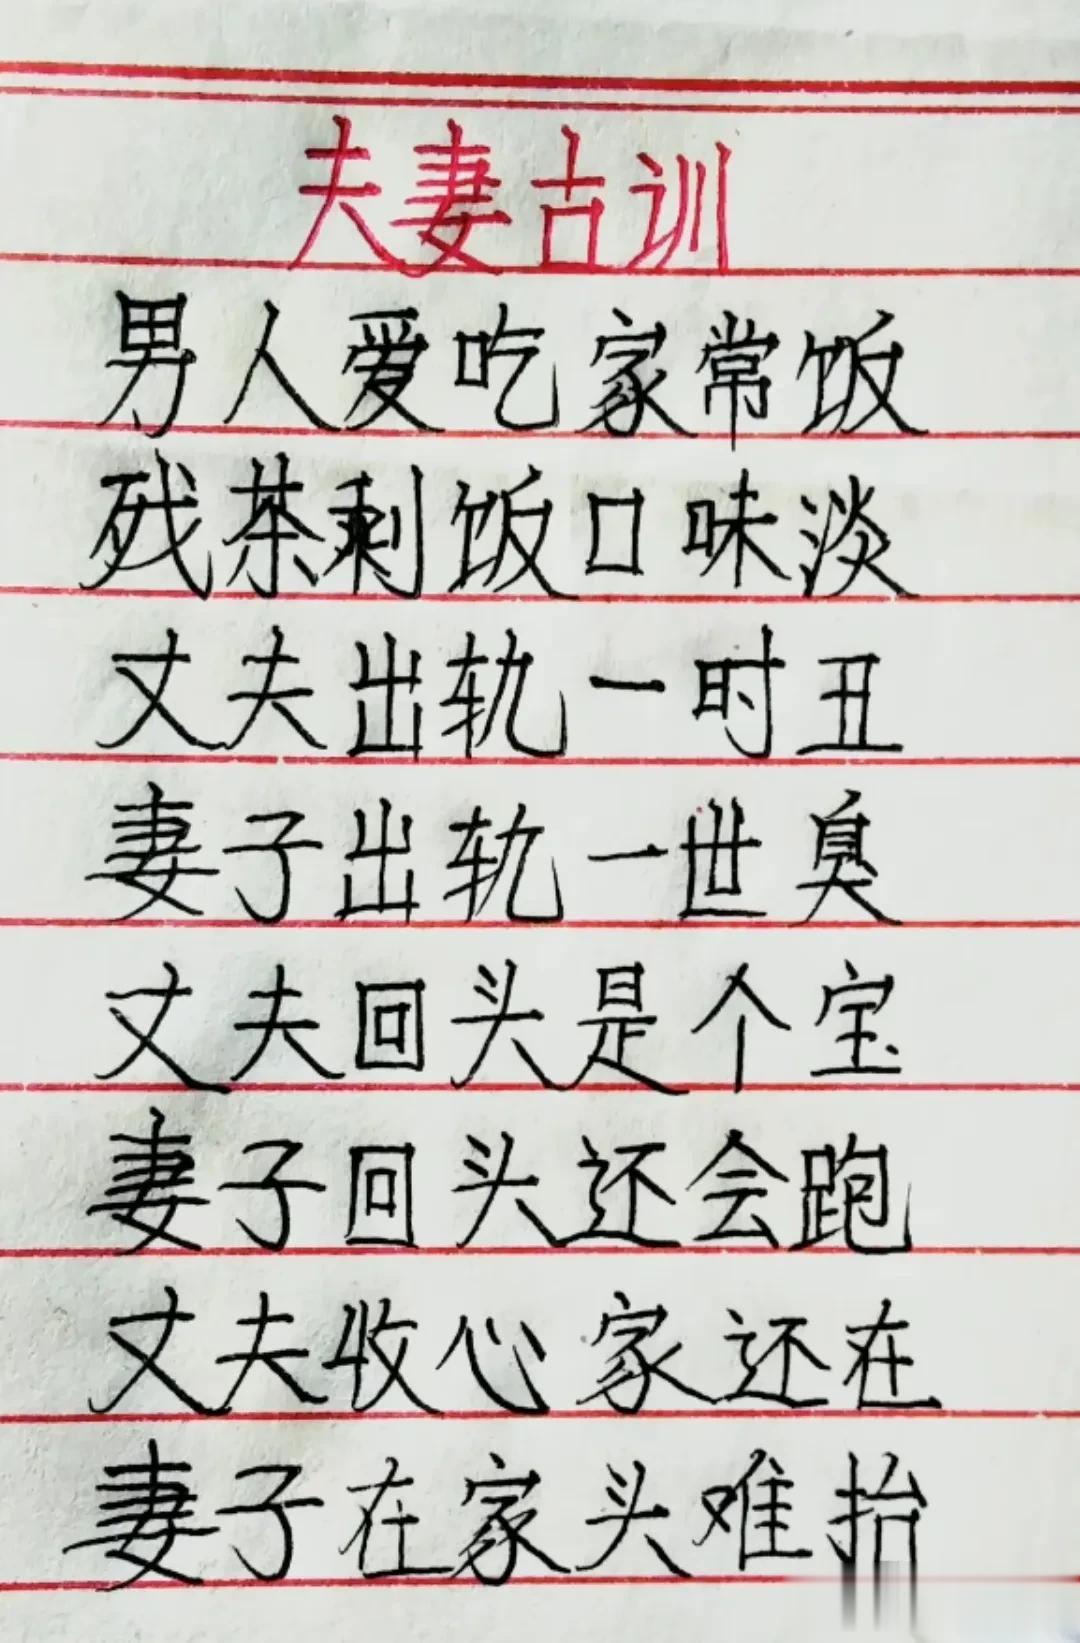 夫妻古训
男人爱吃家常饭
残茶剩饭口味淡
丈夫出轨一时丑
妻子出轨一世臭
丈夫回头是个宝
妻子回头还会跑
丈夫收心家还在
妻子在家头难抬